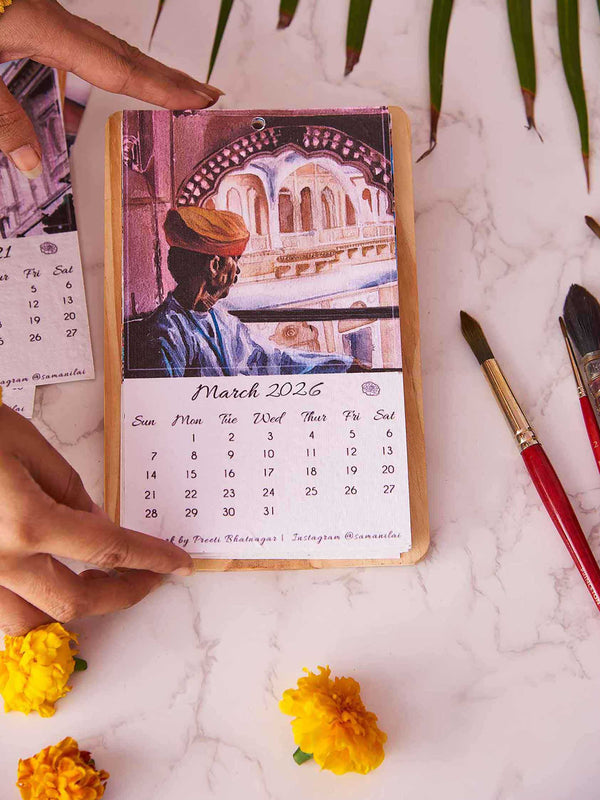 March 2026
Sun Mon Tue Wed Thur Fri Sat
1 2 3 4 5 6
7 8 9 10 11 12 13
14 15 16 17 18 19 20
21 22 23 24 25 26 27
28 29 30 31
by Preeti Bhatnagar | Instagram @samanilai
21
Fri Sat
5 6
12 13
19 20
26 27
@samanilai